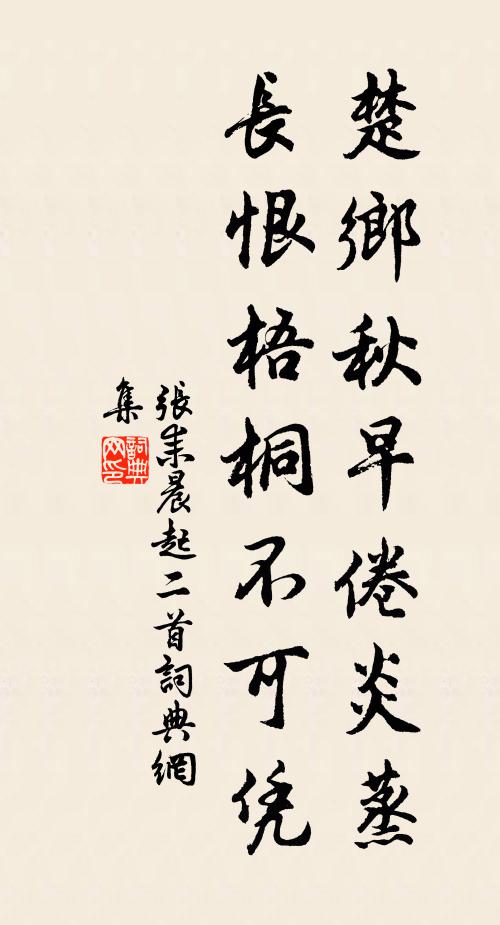 楚鄉秋早倦炎蒸
長恨梧桐不可凭
張耒晨起二首詞典網
集
詞典網印